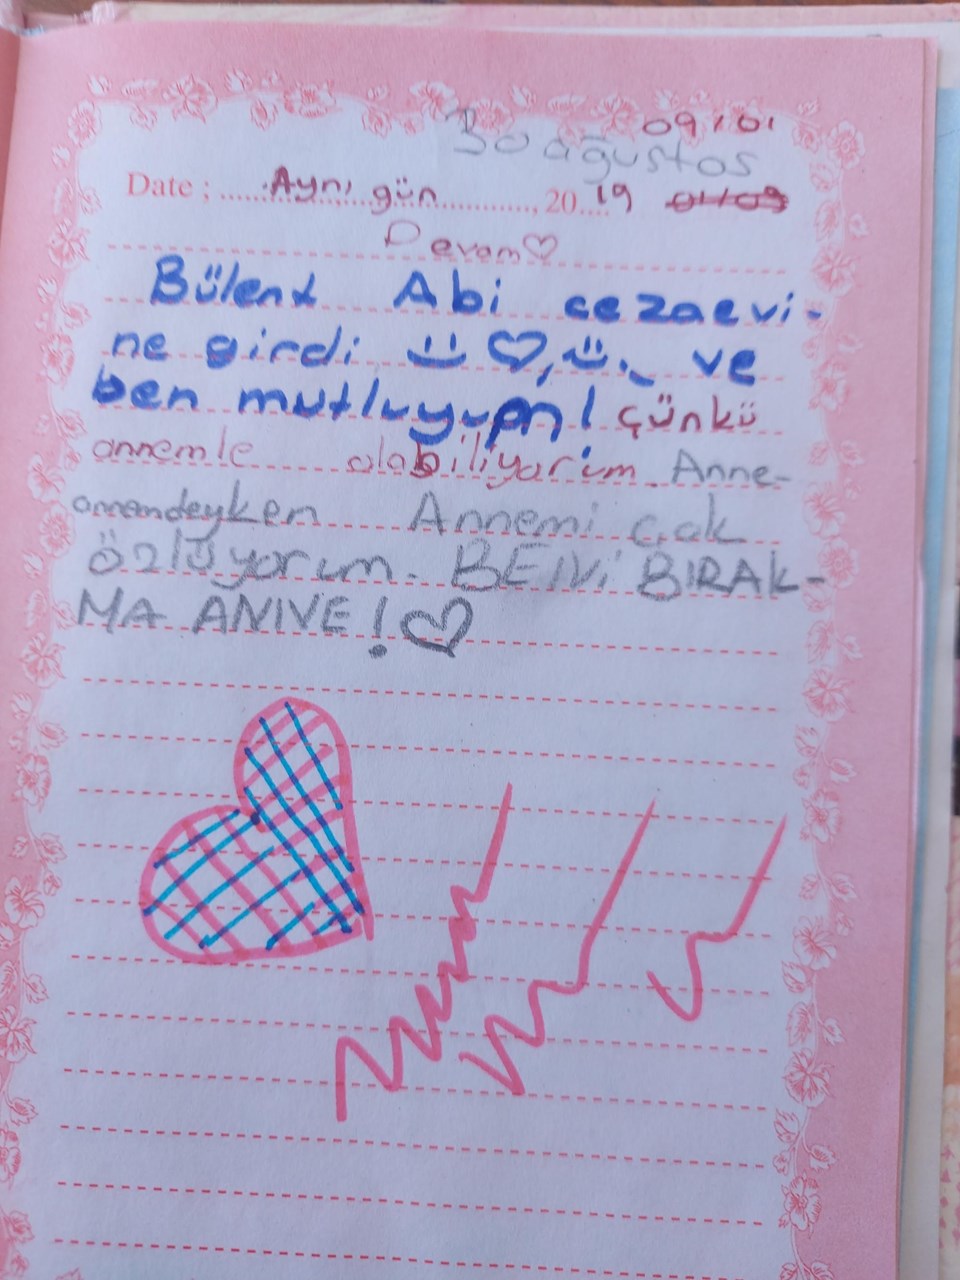 09/01
30 ağustos
Date ; Aynı gün , 2019
Devam♡
Bülent Abi cezaevi-
ne girdi ü ♡, ü ve
ben mutluyum! çünkü
annemle olabiliyorum. Anne-
annemdeyken Annemi çok
özlüyorum. BENi BIRAK-
MA ANNE! ♡